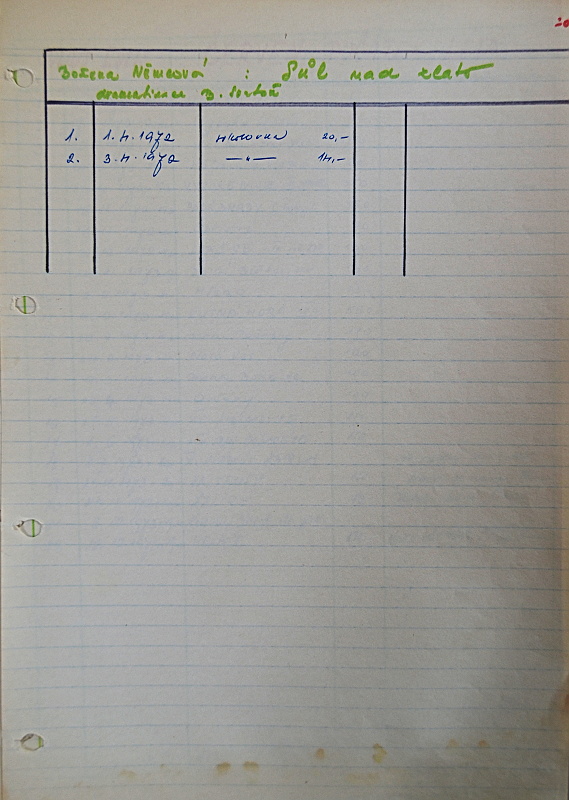 Božena Němcová : Sůl nad zlato
dramatizace
1. 1.4.1972 20,-
2. 3.4.1972 —"— 14,-